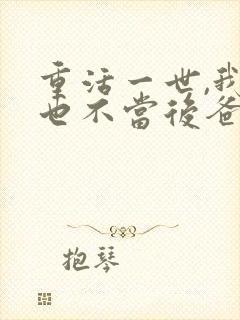 重活一世,我
也不當後爸
抱琴